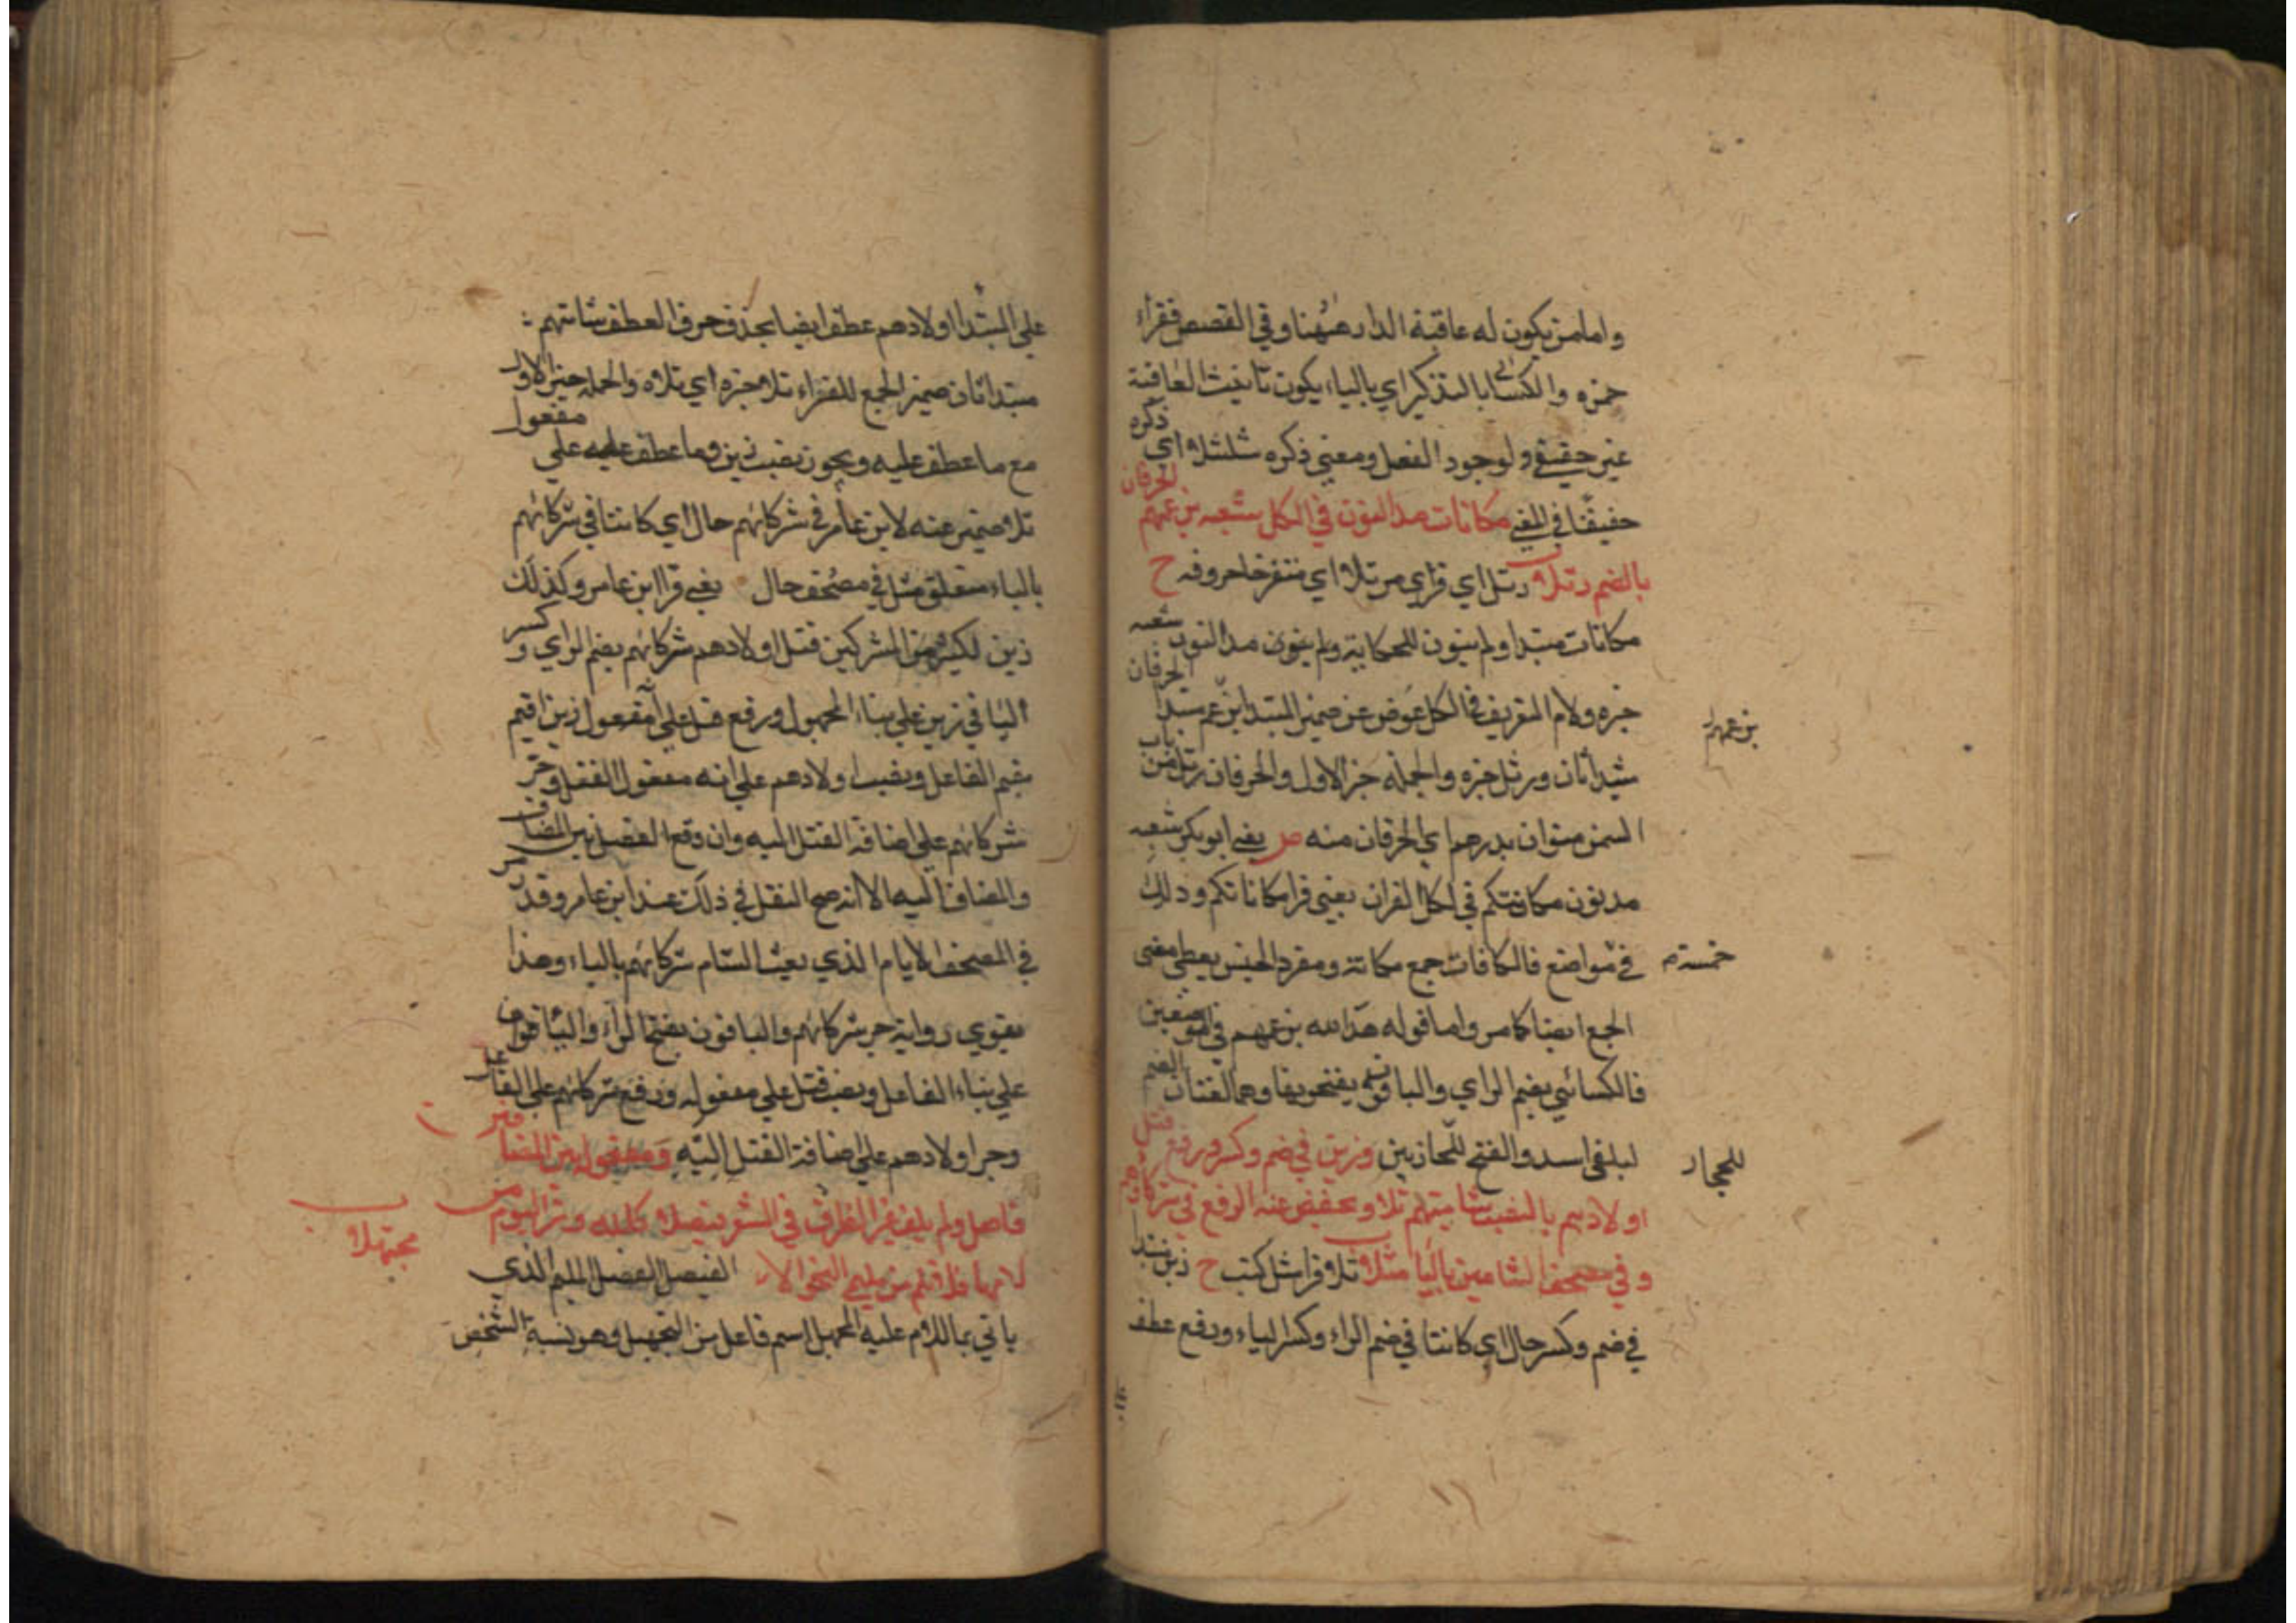 واما من يكون له عاقبة الدار ههنا وفي القصص فقراء
حمزه والكسائي بالتذكير اي بالياء يكون تانيث العاقبة
غير حقيقي ولوجود الفعل ومعنى ذكره شلشلا اي ذكره
خفيفا في اللفظ مكانات مد النون في الكل شعبه بزعمهم الحرفان
بالضم رتلا رتل اي قراي مرتلا اي متفرخا حروفه ح
مكانات مبتدا ولم ينون للحكاية ولم ينون مد النون شعبه
خبره ولام التعريف في الكل عوض عن ضمير المبتدا بزعم مبتدا الحرفان
بزعمهم
مبتدا ثان ورتل خبره والجملة خبر الاول والحرفان رتلا من باب
السمن منوان بدرهم اي الحرفان منه ص يعني ابو بكر شعبه
مد نون مكانتكم في كل القران يعني قرا مكاناتكم وذلك
في مواضع فالمكانات جمع مكانة ومفرد الجنس يعطي معنى
خمسة م
الجمع ايضا كما مر واما قوله هذا لله بزعمهم في الموضعين
فالكسائي بضم الزاي والباقون بفتحها وهما لغتان الضم
لبني اسد والفتح للحجازيين وزين في ضم وكسر ورفع قتل
للحجاز
اولادهم بالنصب شاميهم تلا ويخفض عنه الرفع في شركاؤهم
وفي مصحف الشامين بالياء مثلا تلا قرا مثل كتب ح زين مبتدا
في ضم وكسر حال اي كائنا في ضم الزاء وكسر الياء ورفع عطف
علي المبتدا اولادهم عطف ايضا بحذف حرف العطف شاميهم
مبتدا ثان ضمير الجمع للقراء تلا خبره اي تلاه والجملة خبر الاول
مع ما عطف عليه ويجوز نصب زين وما عطف عليه علي مفعول
تلا ضمير عنه لابن عامر في شركائهم حال اي كائنا في شركائهم
بالياء متعلق مثل في مصحف حال يعني قرا ابن عامر وكذلك
زين لكثير من المشركين قتل اولادهم شركائهم بضم الزاي وكسر
اليا في زين علي بناء المجهول ورفع قتل علي انه مفعول زين اقيم
مقيم الفاعل ونصب اولادهم علي انه مفعول القتل وجر
شركائهم علي اضافة القتل اليه وان وقع الفصل بين المضاف
والمضاف اليه الا انه صح النقل في ذلك عند ابن عامر وقد رسم
في المصحف الامام الذي بعث الشام شركائهم بالياء وهذا
يقوي رواية جر شركائهم والباقون بفتح الزاء والياء
علي بناء الفاعل ونصب قتل علي مفعوله ورفع شركائهم علي الفاعل
وجر اولادهم علي اضافة القتل اليه ومفعوله بين المضافين
فاصل ولم يلف غير الظرف في الشعر فيصلا كلله در اليوم من
لامها فلا تلم من مليمي النحو الا مجهلا
الفيصل الفصل المليم الذي
ياتي بما لام عليه المجهل اسم فاعل من التجهيل وهو نسبة الشخص